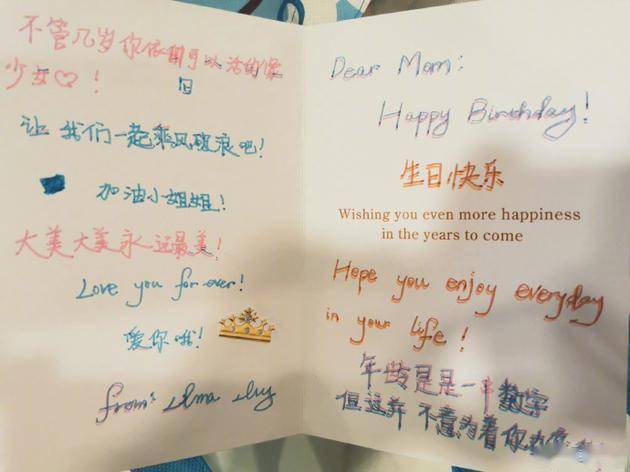 不管几岁你依旧可以活的像
少女♡！
旧
让我们一起乘风破浪吧!
加油小姐姐!
大美大美永远最美!
Love you for ever!
爱你哦!
from:
Dear Mom:
Happy Birthday!
生日快乐
Wishing you even more happiness
in the years to come
Hope you enjoy everyday
in your life!
年龄是是一串数字
但这并不意为着你